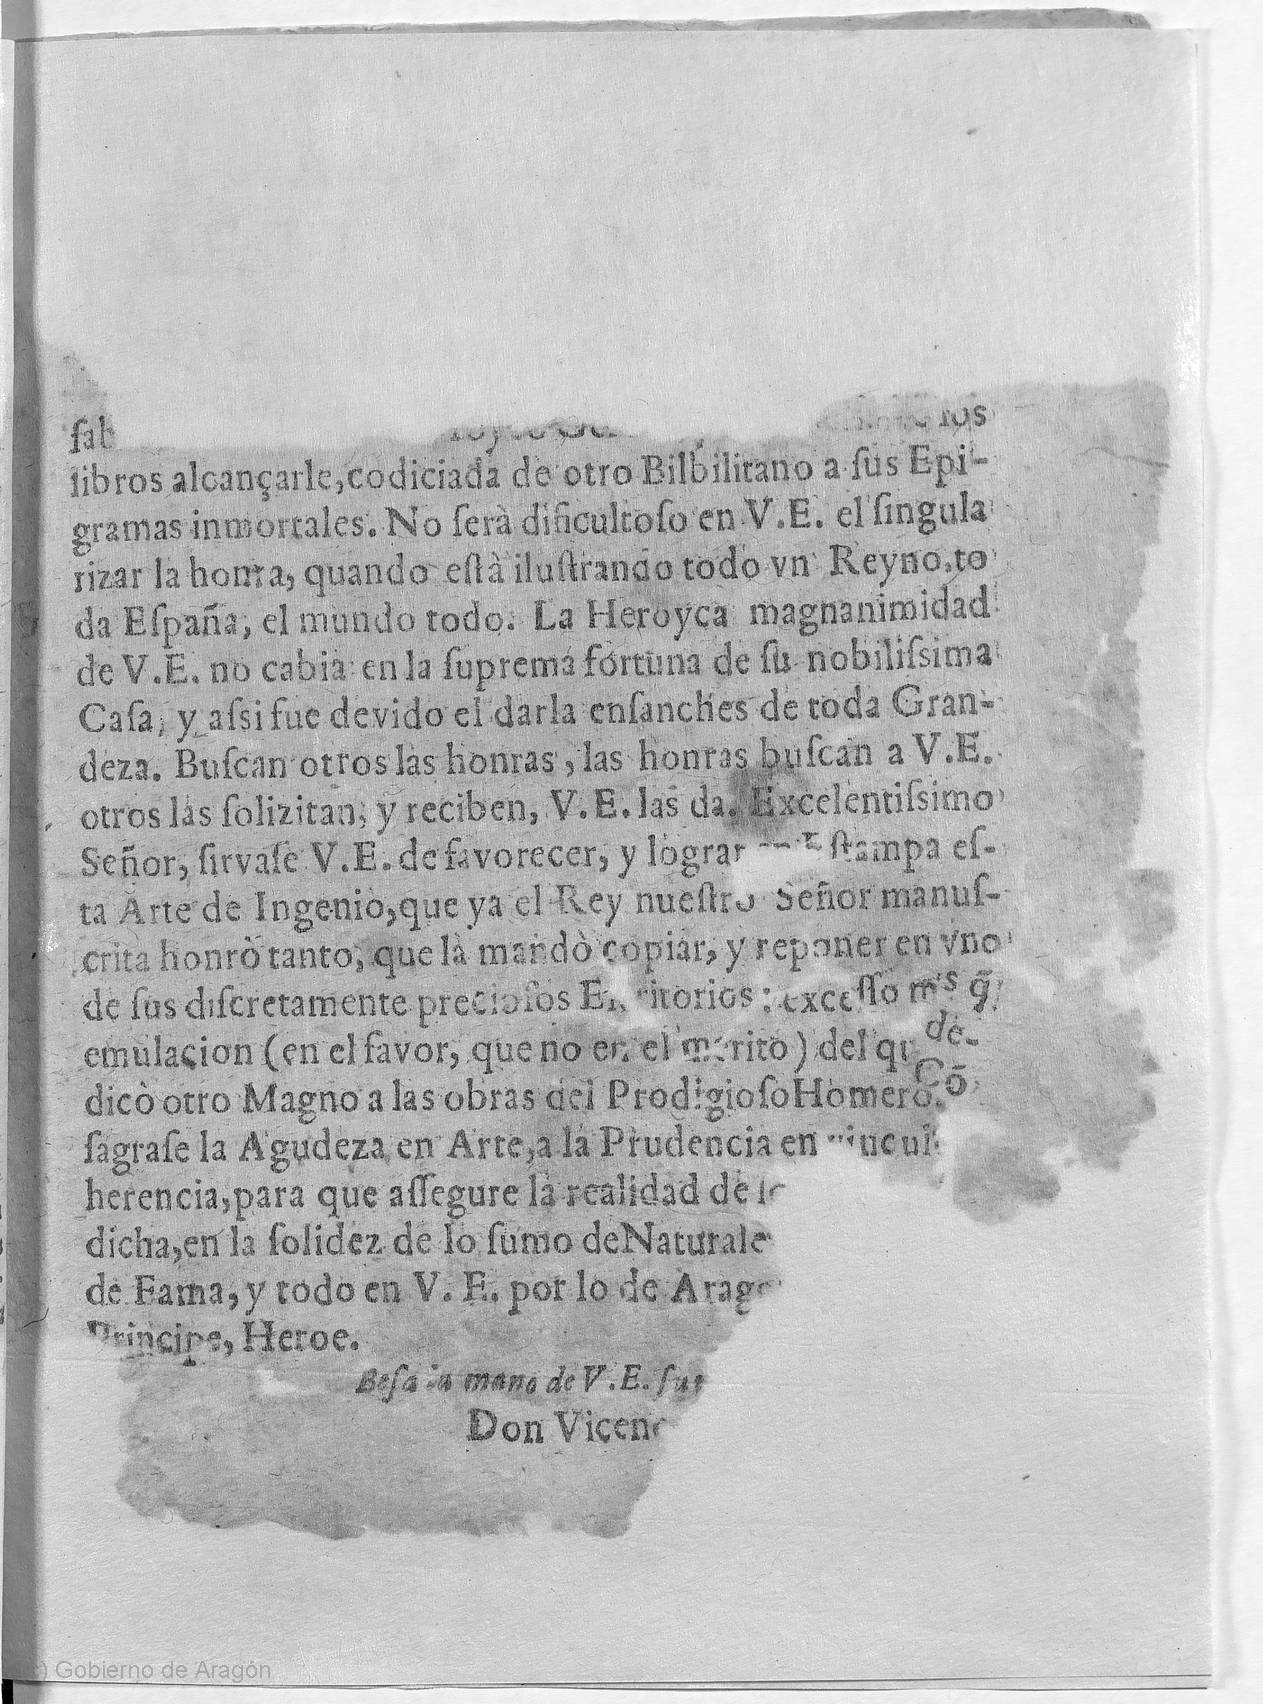 los
libros alcançarle, codiciada de otro Bilbilitano a ſus Epi-
gramas inmortales. No ſerà dificultoſo en V.E. el ſingula
rizar la honra, quando eſtà iluſtrando todo vn Reyno, to
da Eſpaña, el mundo todo. La Heroyca magnanimidad
de V.E. no cabia en la ſuprema fortuna de ſu nobiliſsima
Caſa, y aſsi fue devido el darla enſanches de toda Gran-
deza. Buſcan otros las honras, las honras buſcan a V.E.
otros las ſolizitan, y reciben, V.E. las da. Excelentiſsimo
Señor, ſirvaſe V.E. de favorecer, y lograr Eſtampa eſ-
ta Arte de Ingenio, que ya el Rey nueſtro Señor manuſ-
crita honrò tanto, que la mandò copiar, y reponer en vno
de ſus diſcretamente precioſos : exceſſo mˢ q̃
emulacion (en el favor, que no en el merito) del de-
dicò otro Magno a las obras del Prodigioſo Homero. Cõ
ſagraſe la Agudeza en Arte, a la Prudencia en
herencia, para que aſſegure la realidad de
dicha, en la ſolidez de lo ſumo de
de Fama, y todo en V. E. por lo de
Principe, Heroe.
Beſa la mano de V.E. ſu
Don
Gobierno de Aragón